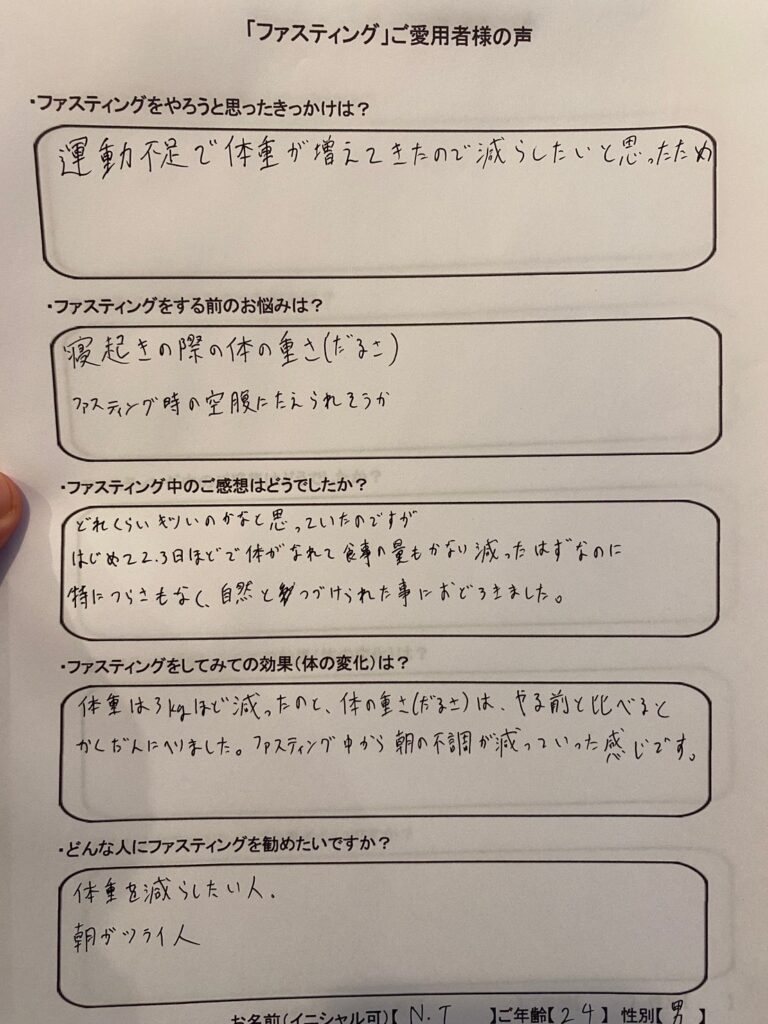 「ファスティング」ご愛用者様の声
・ファスティングをやろうと思ったきっかけは？
運動不足で体重が増えてきたので減らしたいと思ったため
・ファスティングをする前のお悩みは？
寝起きの際の体の重さ(だるさ)
ファスティング時の空腹にたえられそうか
・ファスティング中のご感想はどうでしたか？
どれくらいキツいのかなと思っていたのですが
はじめて2.3日ほどで体がなれて食事の量もかなり減ったはずなのに
特につらさもなく、自然とつづけられた事におどろきました。
・ファスティングをしてみての効果(体の変化)は？
体重は3kgほど減ったのと、体の重さ(だるさ)は、やる前と比べると
かくだんにへりました。ファスティング中から朝の不調が減っていった感じです。
・どんな人にファスティングを勧めたいですか？
体重を減らしたい人.
朝がツライ人
お名前(イニシャル可)【 N.T 】ご年齢【24】 性別【男